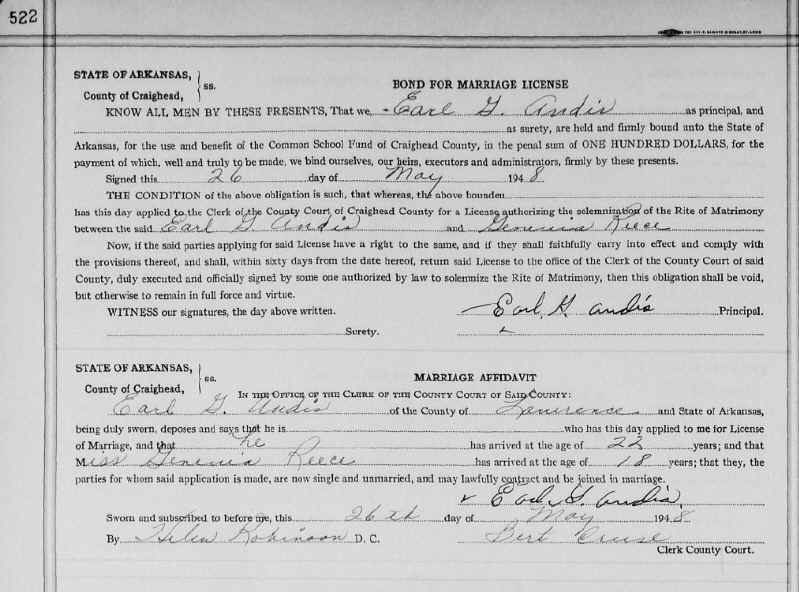 522
STATE OF ARKANSAS,
County of Craighead,
ss.
BOND FOR MARRIAGE LICENSE
KNOW ALL MEN BY THESE PRESENTS, That we, Earl G. Andis as principal, and
as surety, are held and firmly bound unto the State of
Arkansas, for the use and benefit of the Common School Fund of Craighead County, in the penal sum of ONE HUNDRED DOLLARS, for the
payment of which, well and truly to be made, we bind ourselves, our heirs, executors and administrators, firmly by these presents.
Signed this 26 day of May 1948
THE CONDITION of the above obligation is such, that whereas, the above bounden
has this day applied to the Clerk of the County Court of Craighead County for a License authorizing the solemnization of the Rite of Matrimony
between the said Earl G. Andis and Genevia Reece
Now, if the said parties applying for said License have a right to the same, and if they shall faithfully carry into effect and comply with
the provisions thereof, and shall, within sixty days from the date hereof, return said License to the office of the Clerk of the County Court of said
County, duly executed and officially signed by some one authorized by law to solemnize the Rite of Matrimony, then this obligation shall be void,
but otherwise to remain in full force and virtue.
WITNESS our signatures, the day above written. Earl G. Andis Principal.
Surety.
STATE OF ARKANSAS,
County of Craighead,
ss.
MARRIAGE AFFIDAVIT
IN THE OFFICE OF THE CLERK OF THE COUNTY COURT OF SAID COUNTY:
Earl G. Andis of the County of Lawrence and State of Arkansas,
being duly sworn, deposes and says that he is who has this day applied to me for License
of Marriage, and that he has arrived at the age of 22 years; and that
Miss Genevia Reece has arrived at the age of 18 years; that they, the
parties for whom said application is made, are now single and unmarried, and may lawfully contract and be joined in marriage.
x Earl G. Andis,
Sworn and subscribed to before me, this 26th day of May 1948
By Helen Robinson D. C. Bert Cruse
Clerk County Court.